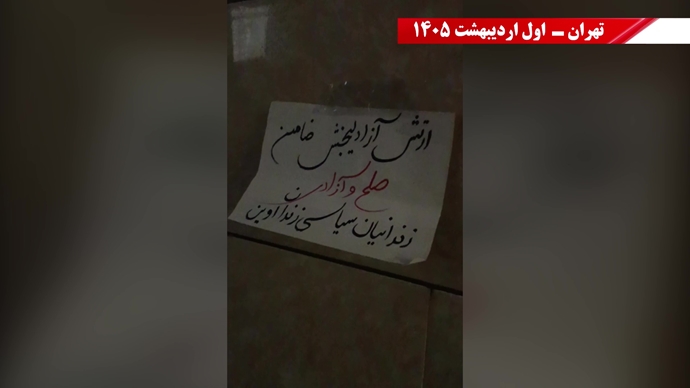 تهران – اول اردیبهشت ۱۴۰۵
ارتش آزادیبخش ضامن
صلح و آزادی
زندانیان سیاسی زندان اوین